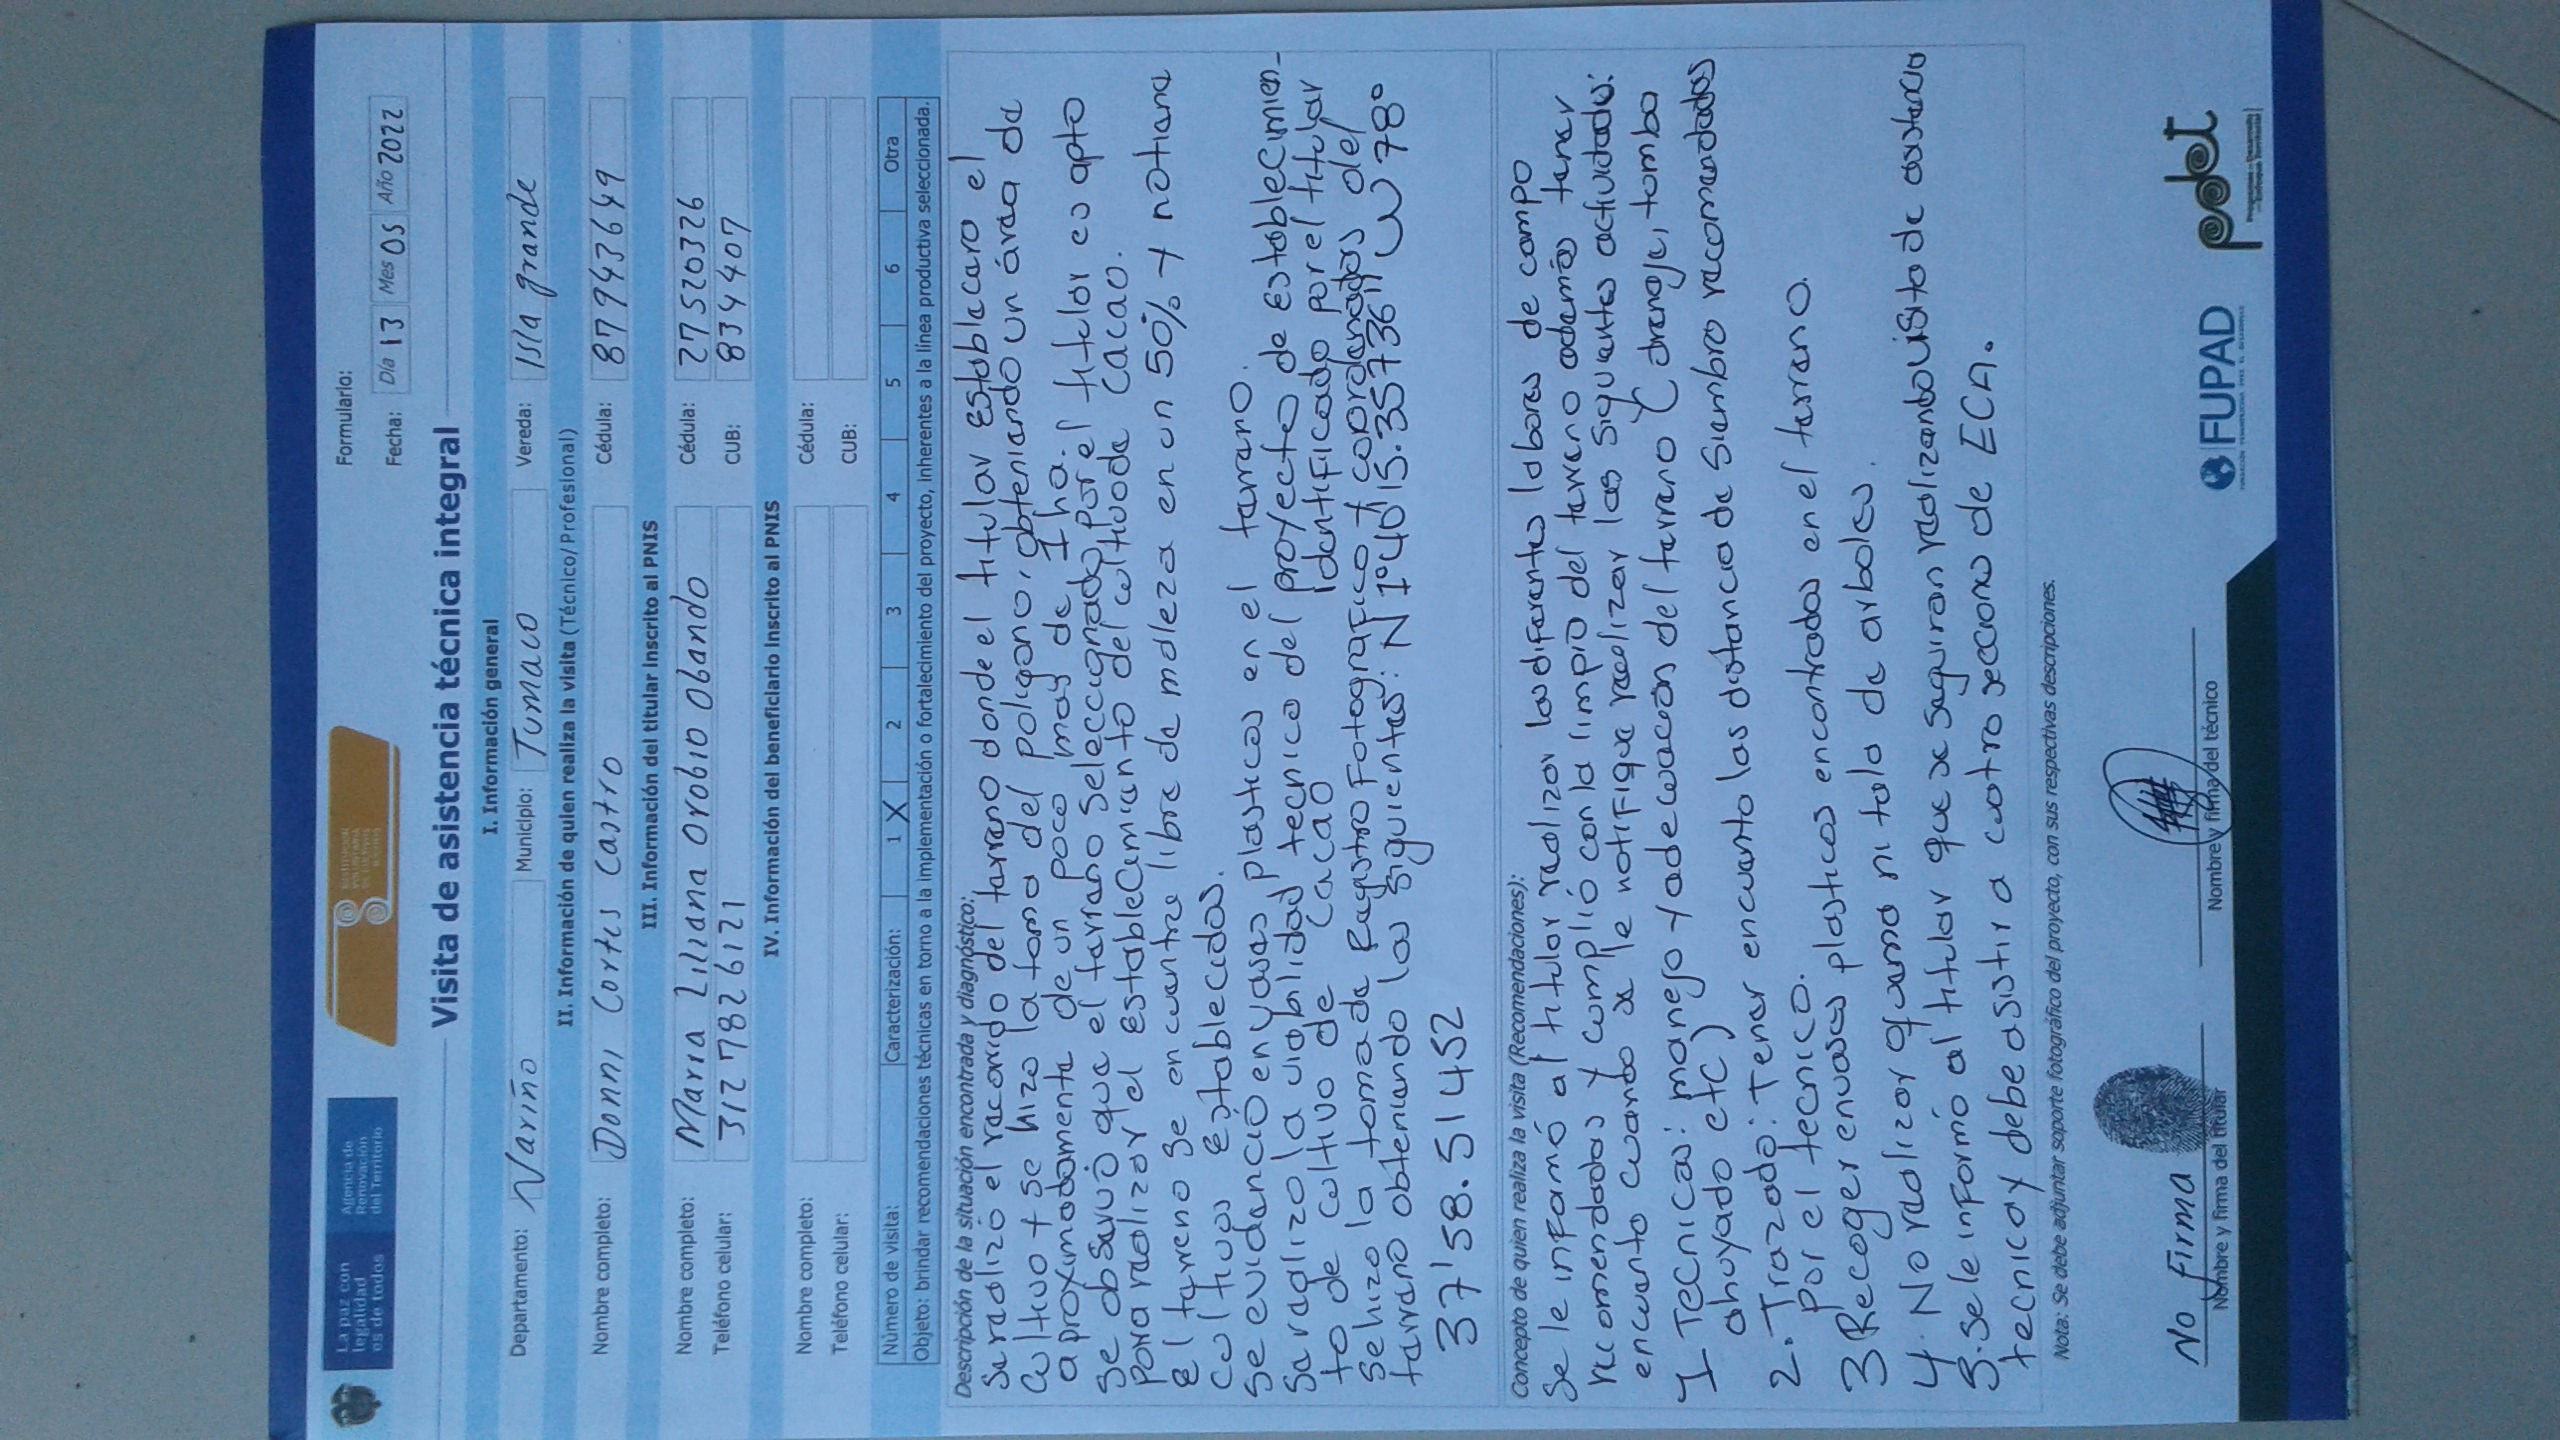 La paz con
legalidad
es de todos
Agencia de
Renovación
del Territorio
SUSTITUCIÓN
VOLUNTARIA
DE CULTIVOS
ILÍCITOS
Formulario:
Fecha: Día 13 Mes 05 Año 2022
Visita de asistencia técnica integral
I. Información general
Departamento: Nariño Municipio: Tumaco Vereda: Isla grande
II. Información de quien realiza la visita (Técnico/Profesional)
Nombre completo: Donni Cortes Castro Cédula: 87943649
III. Información del titular inscrito al PNIS
Nombre completo: Maria Liliana Orobio Obando Cédula: 27520326
Teléfono celular: 3127826121 CUB: 834407
IV. Información del beneficiario inscrito al PNIS
Nombre completo: Cédula:
Teléfono celular: CUB:
Número de visita: Caracterización: 1 X 2 3 4 5 6 Otra
Objeto: brindar recomendaciones técnicas en torno a la implementación o fortalecimiento del proyecto, inherentes a la línea productiva seleccionada.
Descripción de la situación encontrada y diagnóstico:
Se realizó el recorrido del terreno donde el titular establecera el
cultivo y se hizo la toma del poligono, obteniendo un área de
aproximadamente de un poco mas de 1 ha.
Se observó que el terreno seleccionado por el titular es apto
para realizar el establecimiento del cultivo de cacao.
El terreno se encuentra libre de maleza en un 50% y no tiene
cultivos establecidos.
Se evidenció envases plasticos en el terreno.
Se realizo la viabilidad tecnico del proyecto de establecimien-
to de cultivo de cacao identificado por el titular
Se hizo la toma de Registro Fotografico y coordenadas del
terreno obteniendo las siguientes: N 1°40'15.35736'' W 78°
37'58.51452
Concepto de quien realiza la visita (Recomendaciones):
Se le informó al titular realizar las diferentes labores de campo
recomendadas y cumplió con la limpia del terreno además tener
encuenta cuando se le notifique realizar las siguientes actividades:
1 Tecnicas: manejo y adecuación del terreno (drenaje, tumba
ahoyado etc)
2. Trazado: Tener encuenta las distancia de Siembra recomendadas
por el tecnico.
3 Recoger envases plasticos encontrados en el terreno.
4. No realizar quema ni tala de arboles.
5. Se le informó al titular que se seguiran realizando visita de asistencia
tecnica y debe asistir a cuatro seccione de ECA.
Nota: Se debe adjuntar soporte fotográfico del proyecto, con sus respectivas descripciones.
No Firma
Nombre y firma del titular
Nombre y firma del técnico
FUPAD
pdet
Programas de Desarrollo
con Enfoque Territorial